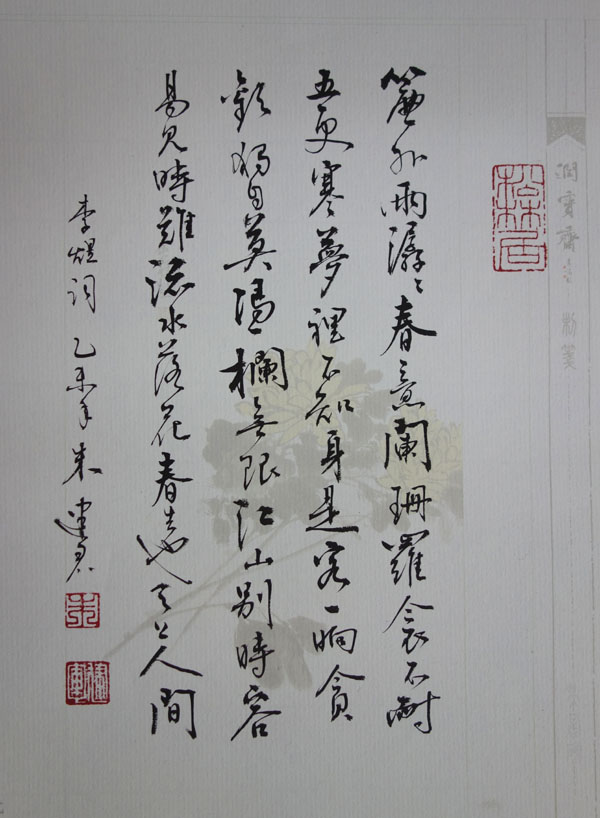 松林居
簾外雨潺々春意闌珊羅衾不耐
五更寒夢裡不知身是客一晌貪
歡獨自莫憑欄無限江山別時容
易見時難流水落花春去也天上人間
李煜詞乙未年朱建
朱